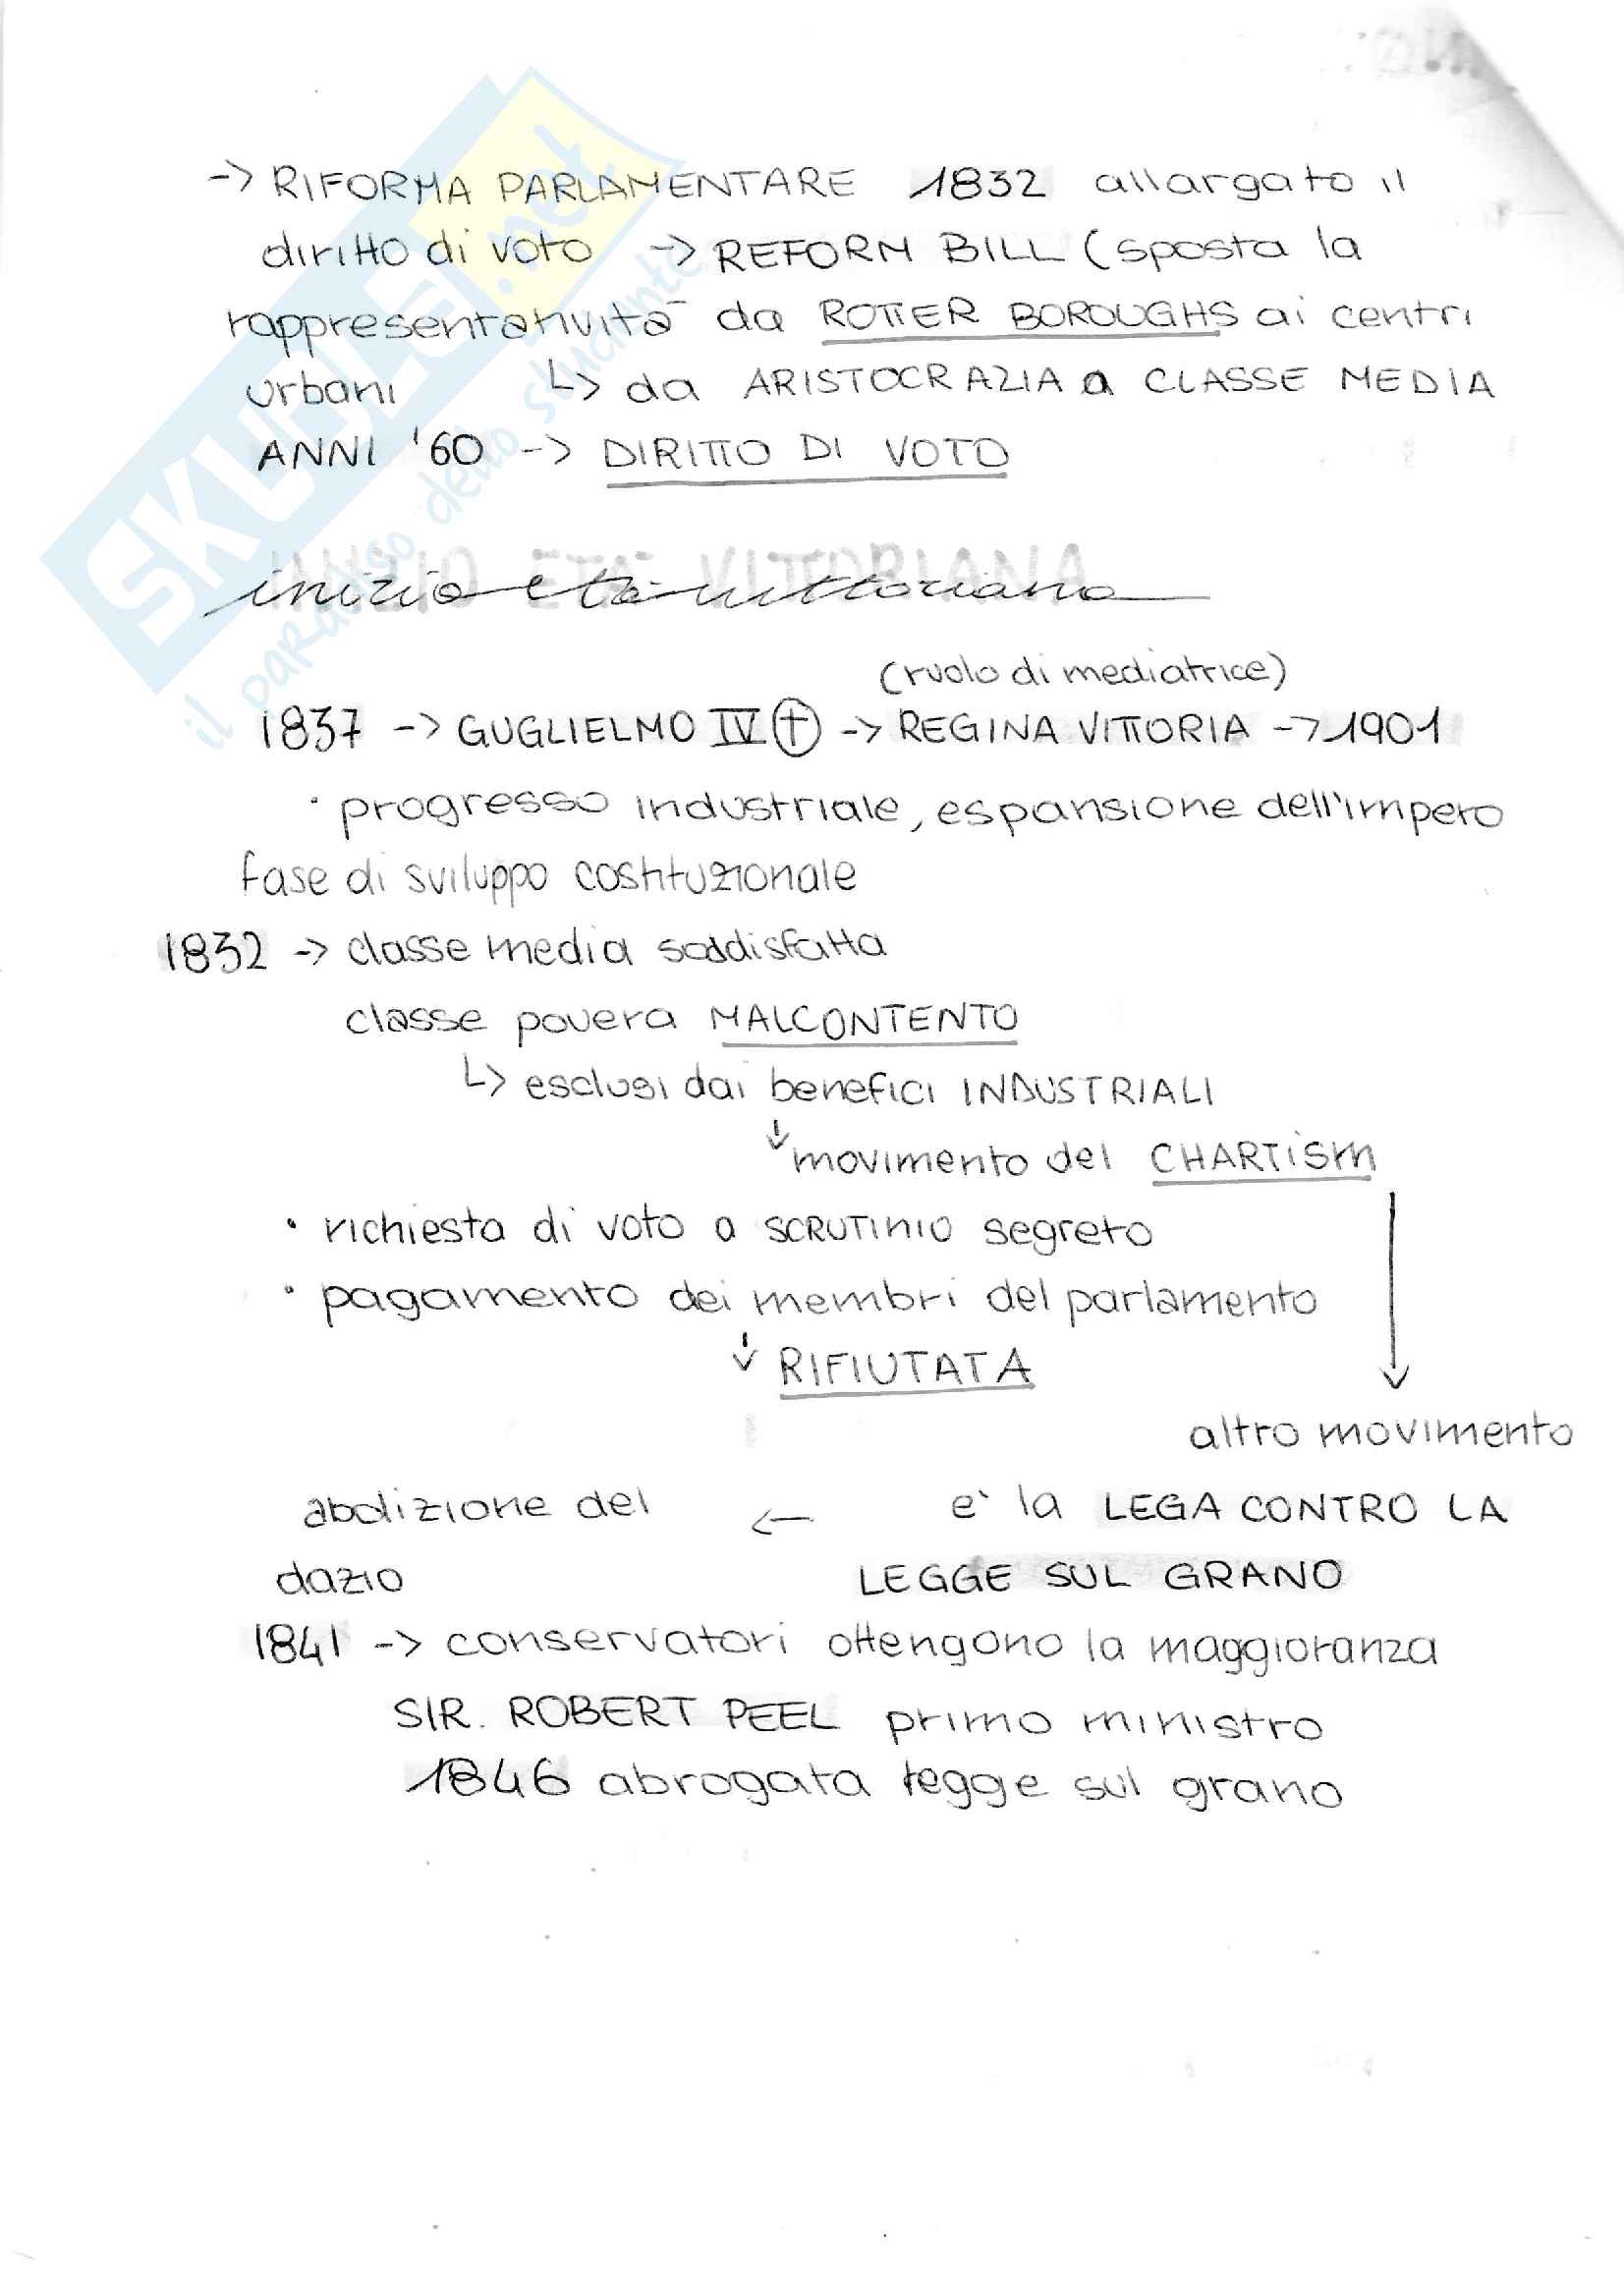 -> RIFORMA PARLAMENTARE 1832 allargato il
diritto di voto -> REFORM BILL (sposta la
rappresentatività da ROTTER BOROUGHS ai centri
urbani ↳ da ARISTOCRAZIA a CLASSE MEDIA
ANNI '60 -> DIRITTO DI VOTO
INIZIO ETA' VITTORIANA
inizio età vittoriana
(ruolo di mediatrice)
1837 -> GUGLIELMO IV † -> REGINA VITTORIA -> 1901
· progresso industriale, espansione dell'impero
fase di sviluppo costituzionale
1832 -> classe media soddisfatta
classe povera MALCONTENTO
↳ esclusi dai benefici INDUSTRIALI
↓ movimento del CHARTiSm
· richiesta di voto a SCRUTINIO segreto
· pagamento dei membri del parlamento
↓ RIFIUTATA
altro movimento
abolizione del <- e' la LEGA CONTRO LA
dazio LEGGE SUL GRANO
1841 -> conservatori ottengono la maggioranza
SIR. ROBERT PEEL primo ministro
1846 abrogata legge sul grano
SKUOLA.net
il paradiso dello studente